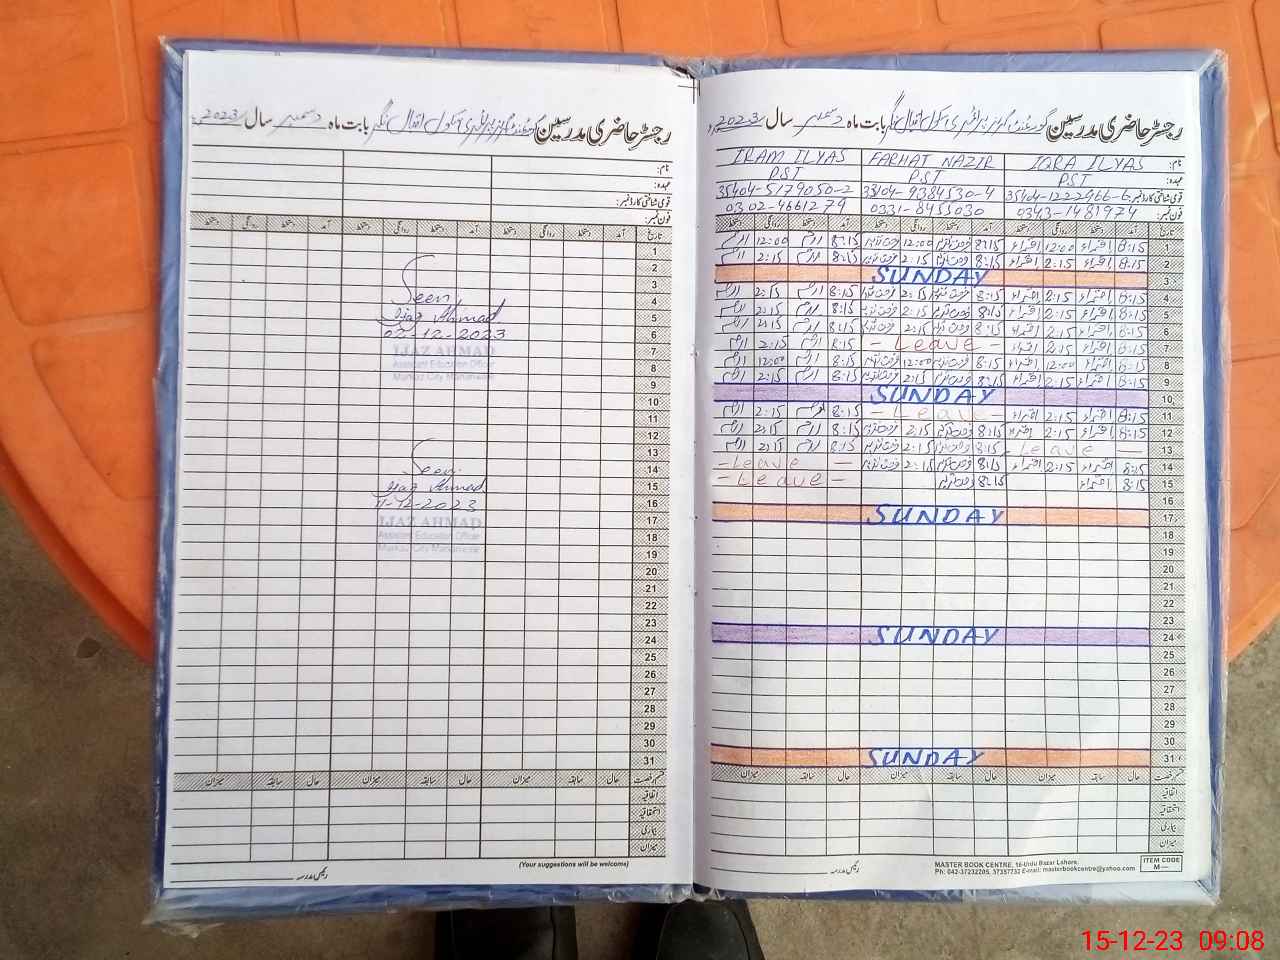 رجسٹر حاضری مدرسین گورنمنٹ گرلز پرائمری سکول اقبال نگر بابت ماہ دسمبر سال 2023ء
Seen
Ijaz Ahmad
07-12-2023
IJAZ AHMAD
Assistant Education Officer
Markaz City Mananwala
Seen
Ijaz Ahmad
11-12-2023
IJAZ AHMAD
Assistant Education Officer
Markaz City Mananwala
(Your suggestions will be welcome)
رئیس مدرسہ
رجسٹر حاضری مدرسین گورنمنٹ گرلز پرائمری سکول اقبال نگر بابت ماہ دسمبر سال 2023ء
نام: IQRA ILYAS FARHAT NAZIR IRAM ILYAS
عہدہ: PST PST PST
قومی شناختی کارڈ نمبر: 35404-1222966-6 38104-9384530-4 35404-5179050-2
فون نمبر: 0343-1481974 0331-8455030 0302-4661279
تاریخ آمد دستخط روانگی دستخط آمد دستخط روانگی دستخط آمد دستخط روانگی دستخط
1 8:15 اقراء 12:00 اقراء 8:15 فرحت نذیر 12:00 فرحت نذیر 8:15 ارم 12:00 ارم
2 8:15 اقراء 2:15 اقراء 8:15 فرحت نذیر 2:15 فرحت نذیر 8:15 ارم 2:15 ارم
3 SUNDAY
4 8:15 اقراء 2:15 اقراء 8:15 فرحت نذیر 2:15 فرحت نذیر 8:15 ارم 2:15 ارم
5 8:15 اقراء 2:15 اقراء 8:15 فرحت نذیر 2:15 فرحت نذیر 8:15 ارم 2:15 ارم
6 8:15 اقراء 2:15 اقراء 8:15 فرحت نذیر 2:15 فرحت نذیر 8:15 ارم 2:15 ارم
7 8:15 اقراء 2:15 اقراء - Leave - 8:15 ارم 2:15 ارم
8 8:15 اقراء 12:00 اقراء 8:15 فرحت نذیر 12:00 فرحت نذیر 8:15 ارم 12:00 ارم
9 8:15 اقراء 2:15 اقراء 8:15 فرحت نذیر 2:15 فرحت نذیر 8:15 ارم 2:15 ارم
10 SUNDAY
11 8:15 اقراء 2:15 اقراء - Leave - 8:15 ارم 2:15 ارم
12 8:15 اقراء 2:15 اقراء 8:15 فرحت نذیر 2:15 فرحت نذیر 8:15 ارم 2:15 ارم
13 - Leave - 8:15 فرحت نذیر 2:15 فرحت نذیر 8:15 ارم 2:15 ارم
14 8:15 اقراء 2:15 اقراء 8:15 فرحت نذیر 2:15 فرحت نذیر - Leave -
15 8:15 اقراء 8:15 فرحت نذیر - Leave -
16
17 SUNDAY
18
19
20
21
22
23
24 SUNDAY
25
26
27
28
29
30
31 SUNDAY
قسم رخصت حال سابقہ میزان حال سابقہ میزان حال سابقہ میزان
اتفاقیہ
استحقاقیہ
بیماری
میزان
رئیس مدرسہ
MASTER BOOK CENTRE, 16-Urdu Bazar Lahore.
Ph: 042-37232205, 37357732 E-mail: masterbookcentre@yahoo.com
ITEM CODE
M—
15-12-23 09:08